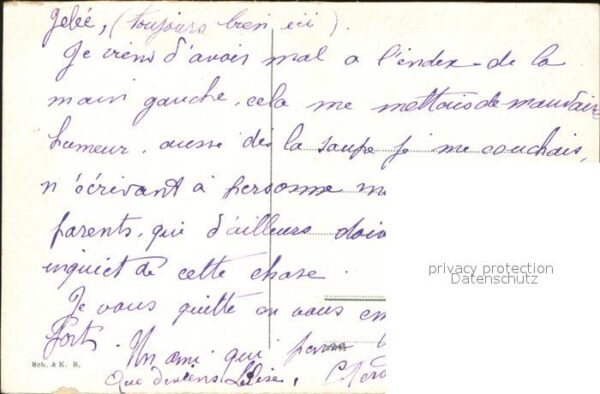 gelée, (toujours bien ici).
Je viens d'avoir mal a l'index de la
main gauche, cela me mettais de mauvaise
humeur, aussi dès la soupe je me couchais,
n'écrivant à personne m
parents, qui d'ailleurs doiv
inquiet de cette chose.
privacy protection
Datenschutz
Je vous quitte en vous em
fort.
Un ami qui
Sch. & K. B.
Que deviens